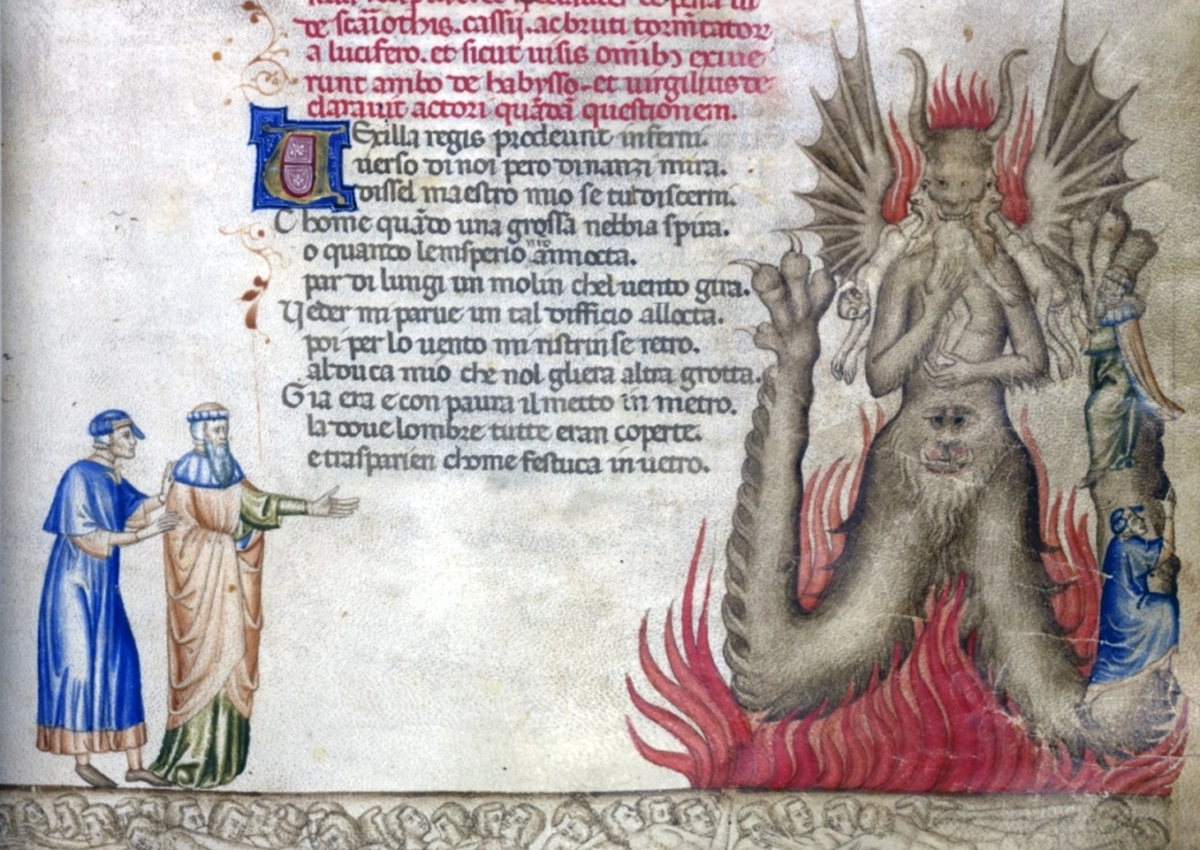 de scariothis. cassii. ac bruti tormentatorẽ
a lucifero. et sicut uisis omĩbꝫ exiue
runt ambo de habysso. et uirgilius de
clarauit actori quãdã questionem.
UExilla regis prodeunt inferni.
uerso di noi pero dinanzi mira.
dissel maestro mio se tu discerni.
Chome quãdo una grossa nebbia spira.
o quando lemisperio nrõ annocta.
par di lungi un molin chel uento gira.
Veder mi parue un tal difficio allocta.
poi per lo uento mi ristrinse retro.
al duca mio che nol gliera altra grotta.
Gia era e con paura il metto in metro.
la doue lombre tutte eran coperte.
e trasparien chome festuca in uetro.